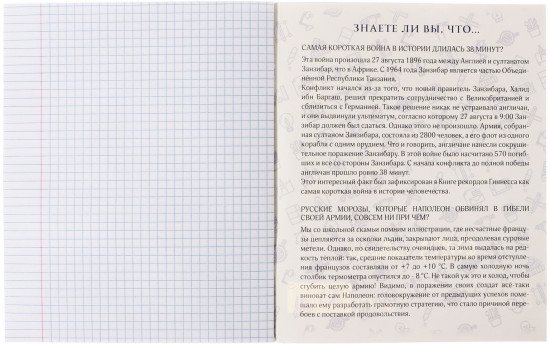 ЗНАЕТЕ ЛИ ВЫ, ЧТО...
САМАЯ КОРОТКАЯ ВОЙНА В ИСТОРИИ ДЛИЛАСЬ 38 МИНУТ?
Эта война произошла 27 августа 1896 года между Англией и султанатом
Занзибар, что в Африке. С 1964 года Занзибар является частью Объеди-
нённой Республики Танзания.
Конфликт начался из-за того, что новый правитель Занзибара, Халид
ибн Баргаш, решил прекратить сотрудничество с Великобританией и
сблизиться с Германией. Такое решение никак не устраивало англичан,
и они выдвинули ультиматум, согласно которому 27 августа в 9:00 Зан-
зибар должен был сдаться. Однако этого не произошло. Армия, собран-
ная султаном Занзибара, состояла из 2800 человек, а его флот из одного
корабля с одним орудием. Что и говорить, англичане нанесли сокруши-
тельное поражение Занзибару. В этой войне было насчитано 570 погиб-
ших и все со стороны Занзибара. С начала конфликта до полной победы
англичан прошло ровно 38 минут.
Этот интересный факт был зафиксирован в Книге рекордов Гиннесса как
самая короткая война в истории человечества.
РУССКИЕ МОРОЗЫ, КОТОРЫЕ НАПОЛЕОН ОБВИНЯЛ В ГИБЕЛИ
СВОЕЙ АРМИИ, СОВСЕМ НИ ПРИ ЧЁМ?
Мы со школьной скамьи помним иллюстрации, где несчастные францу-
зы цепляются за осколки льдин, закрывают лица, преодолевая суровые
метели. Однако, по свидетельству очевидцев, та зима выдалась на ред-
кость теплой: так, средние показатели температуры во время отступле-
ния французов составляли от +7 до +10 °С. В самую холодную ночь
столбик термометра опустился до - 8 °С. Не такой уж это и холод, чтобы
сгубить целую армию! Видимо, в поражении своих солдат все-таки
виноват сам Наполеон: головокружение от предыдущих успехов поме-
шало ему разработать грамотную стратегию, что стало причиной пере-
боев с поставкой продовольствия.